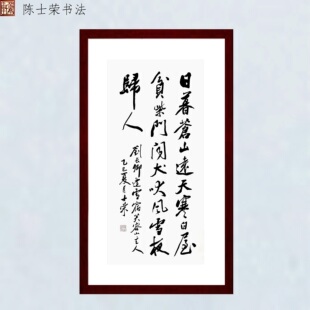 陈士荣书法
日暮蒼山遠天寒白屋
貧柴門聞犬吠風雪夜
歸人
劉長卿逢雪宿芙蓉山主人
乙巳夏月士榮